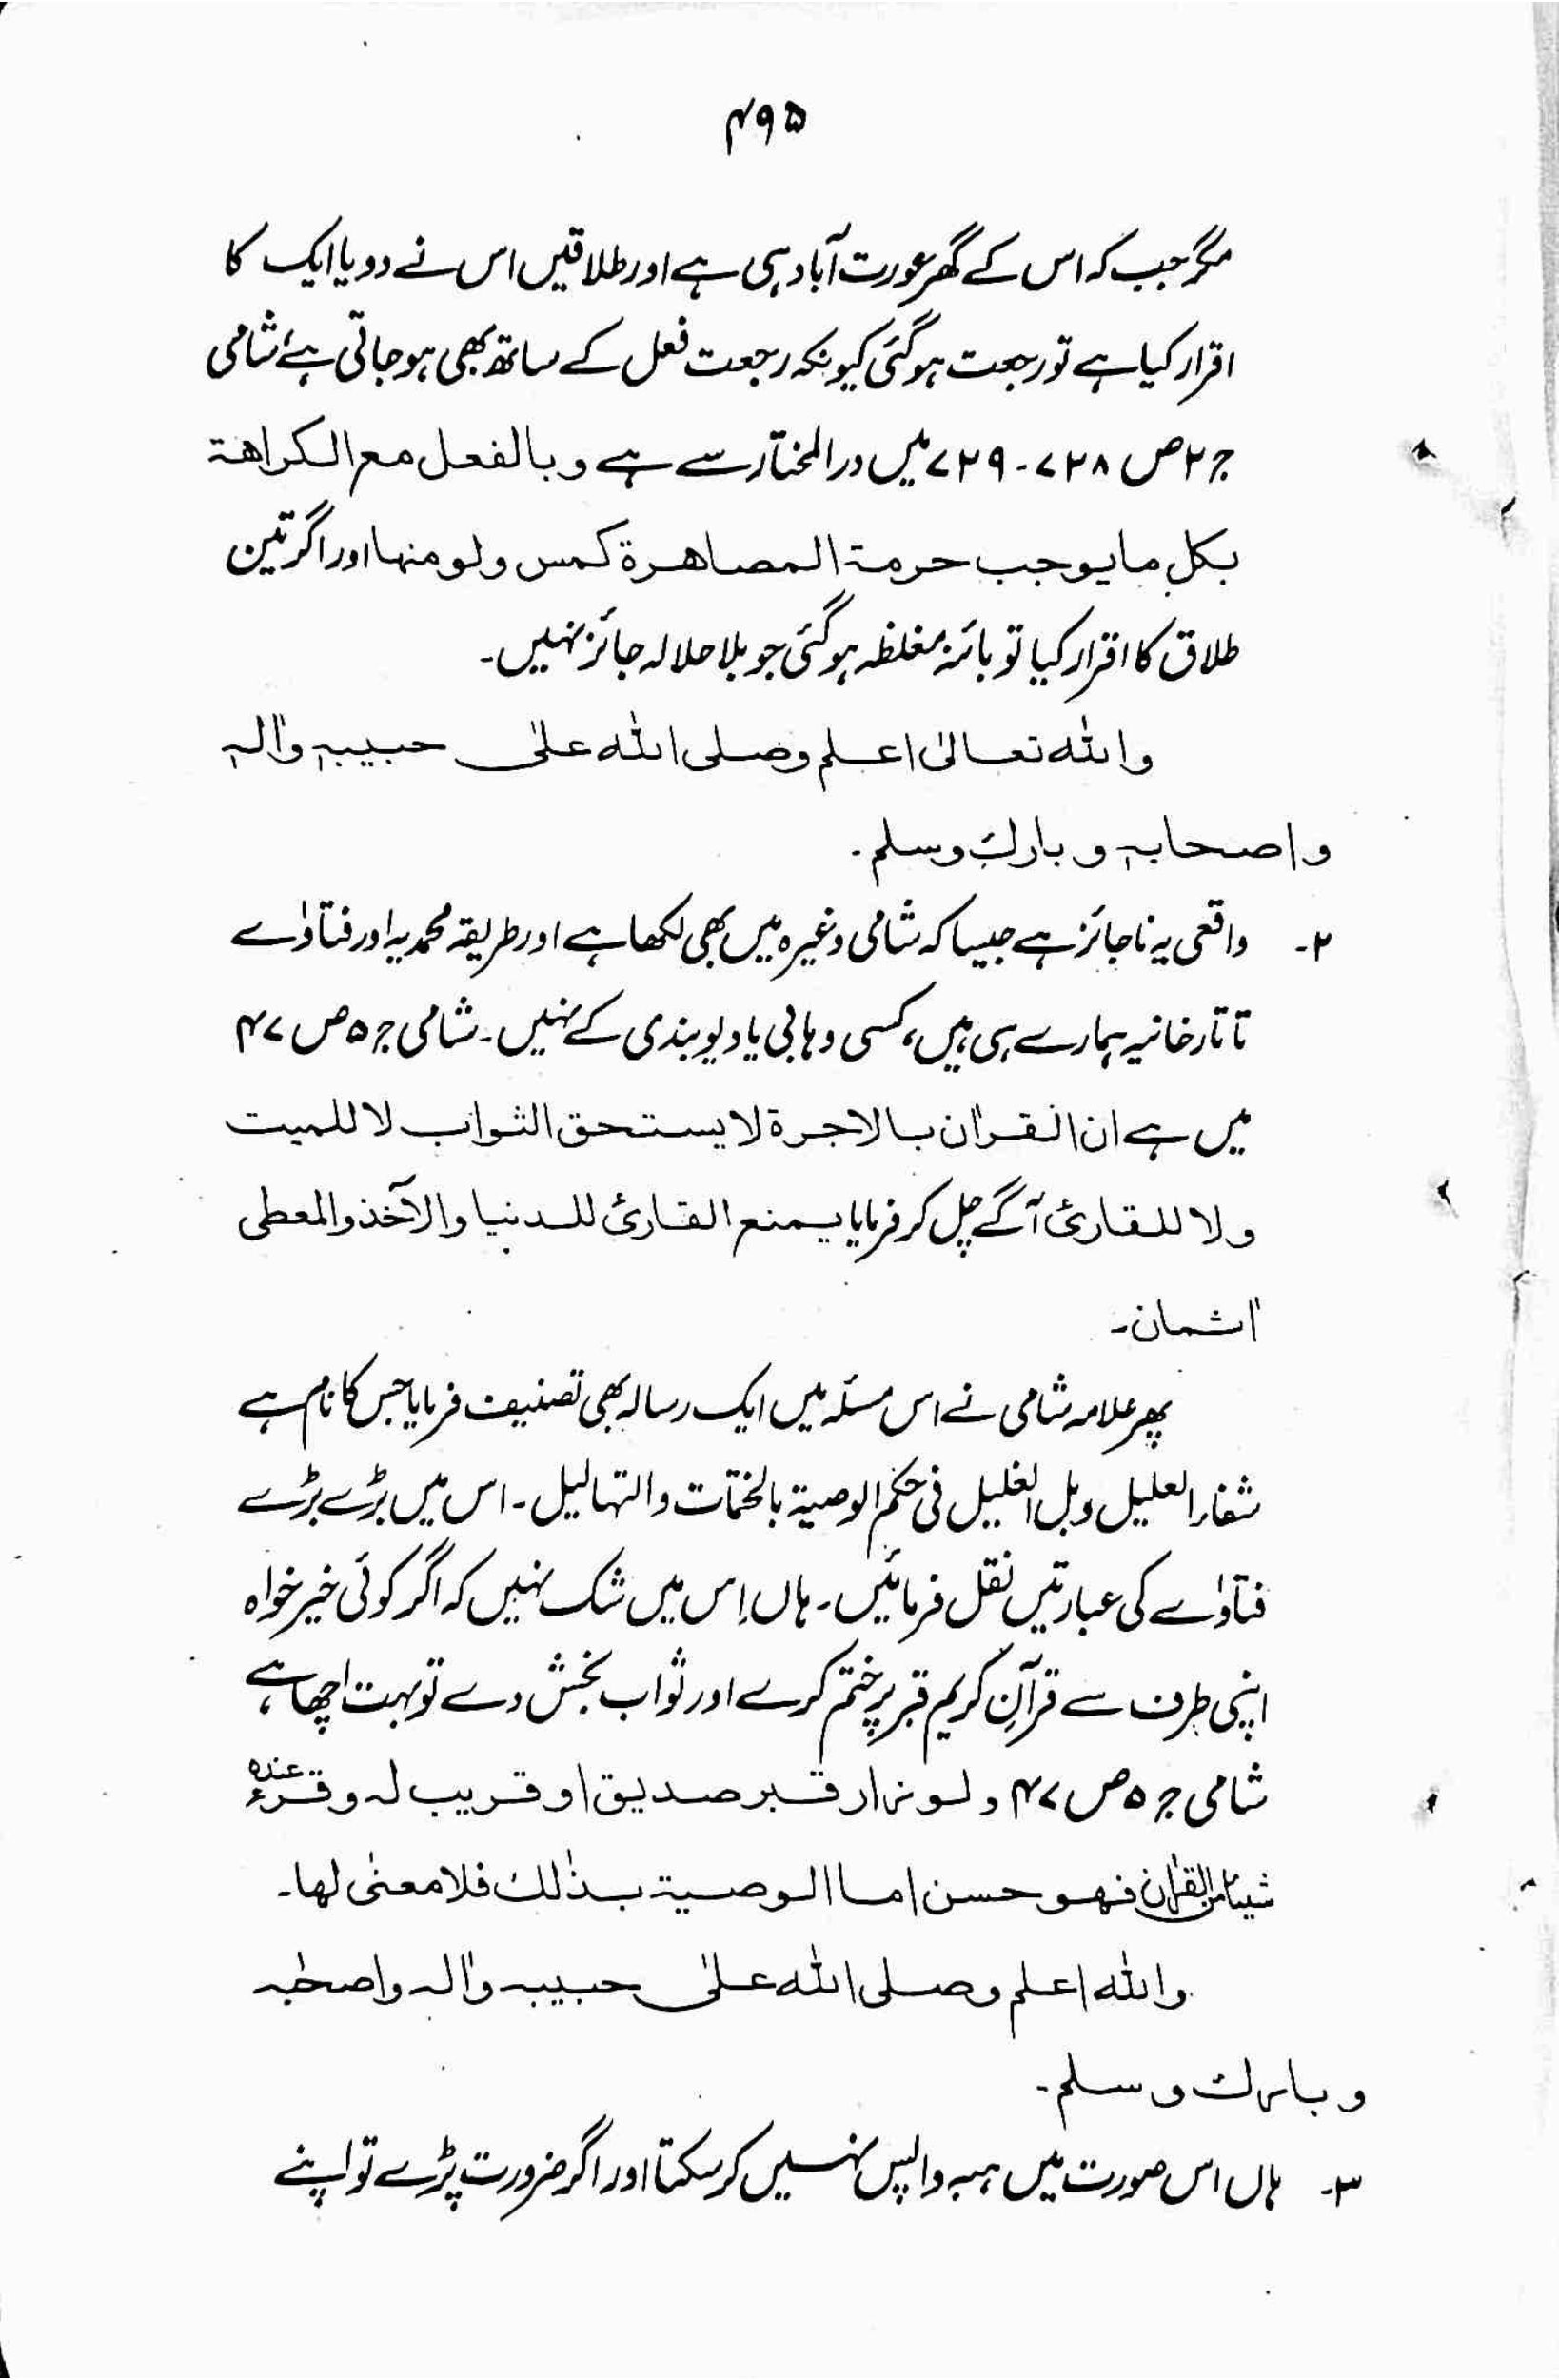 ۴۹۵
مگر جب کہ اس کے گھر عورت آباد ہی ہے اور طلاقیں اس نے دو یا ایک کا
اقرار کیا ہے تو رجعت ہو گئی کیونکہ رجعت فعل کے ساتھ بھی ہو جاتی ہے، شامی
ج ۲ ص ۷۲۸ - ۷۲۹ میں در المختار سے ہے و بالفعل مع الکراھۃ
بکل ما یوجب حرمۃ المصاھرۃ کمس ولو منہا اور اگر تین
طلاق کا اقرار کیا تو بائنہ مغلظہ ہو گئی جو بلا حلالہ جائز نہیں۔
واللہ تعالیٰ اعلم وصلی اللہ علیٰ حبیبہٖ واٰلہٖ
واصحابہٖ وبارک وسلم۔
۲۔ واقعی یہ ناجائز ہے جیسا کہ شامی وغیرہ میں بھی لکھا ہے اور طریقہ محمدیہ اور فتاوٰے
تاتارخانیہ ہمارے ہی ہیں، کسی وہابی یا دیوبندی کے نہیں۔ شامی ج ۵ ص ۴۷
میں ہے ان القراٰن بالاجرۃ لا یستحق الثواب لا للمیت
ولا للقارئ آگے چل کر فرمایا یمنع القارئ للدنیا والآخذ والمعطی
اٰثمان۔
پھر علامہ شامی نے اس مسئلہ میں ایک رسالہ بھی تصنیف فرمایا جس کا نام ہے
شفاء العلیل وبل الغلیل فی حکم الوصیۃ بالختمات والتہالیل۔ اس میں بڑے بڑے
فتاوٰے کی عبارتیں نقل فرمائیں۔ ہاں اِس میں شک نہیں کہ اگر کوئی خیر خواہ
اپنی طرف سے قرآنِ کریم قبر پر ختم کرے اور ثواب بخش دے تو بہت اچھا ہے،
شامی ج ۵ ص ۴۷ ولو زار قبر صدیق او قریب لہ وقرء عندہ
شیئا من القراٰن فھو حسن اما الوصیۃ بذٰلک فلا معنٰی لھا۔
واللہ اعلم وصلی اللہ علیٰ حبیبہ واٰلہ واصحٰبہ
وبارک وسلم۔
۳۔ ہاں اس صورت میں ہبہ واپس نہیں کر سکتا اور اگر ضرورت پڑے تو اپنے